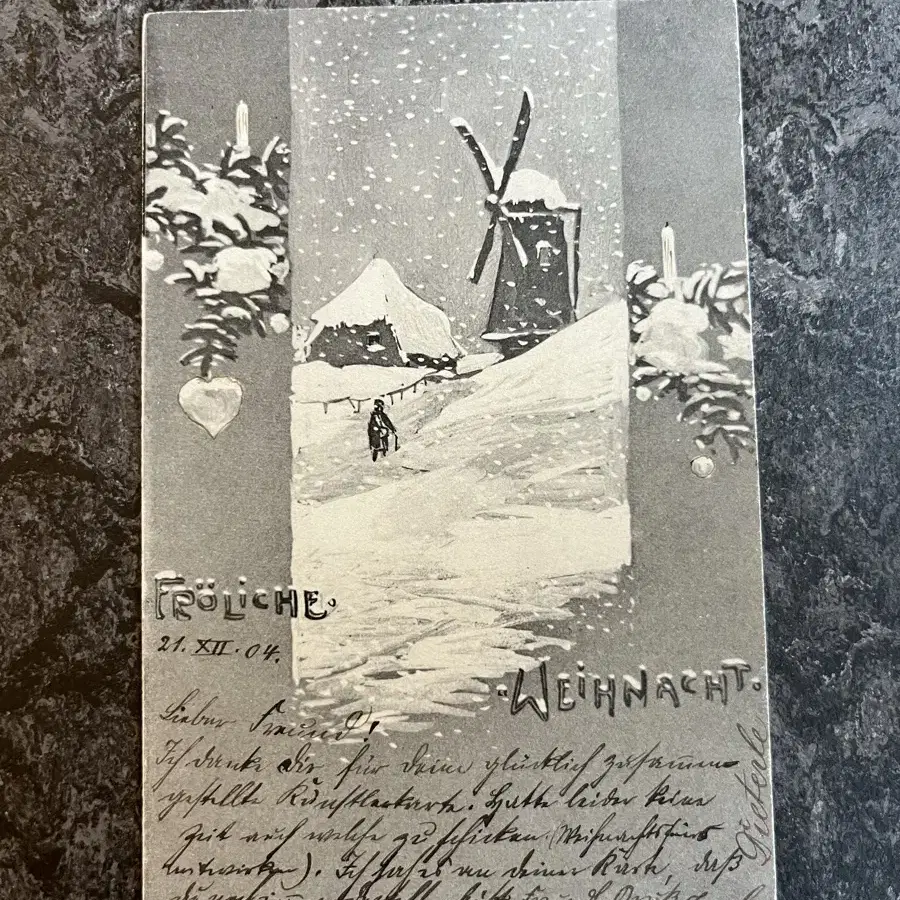 FRÖLICHE.
21. XII. 04.
·WEIHNACHT.
Lieber Freund!
Ich danke dir für deine glücklich zusammen-
gestellte Künstlerkarte. Hatte leider keine
Zeit auch welche zu schicken (Weihnachtsfeier
mitwirken). Ich sah es an deiner Karte, daß